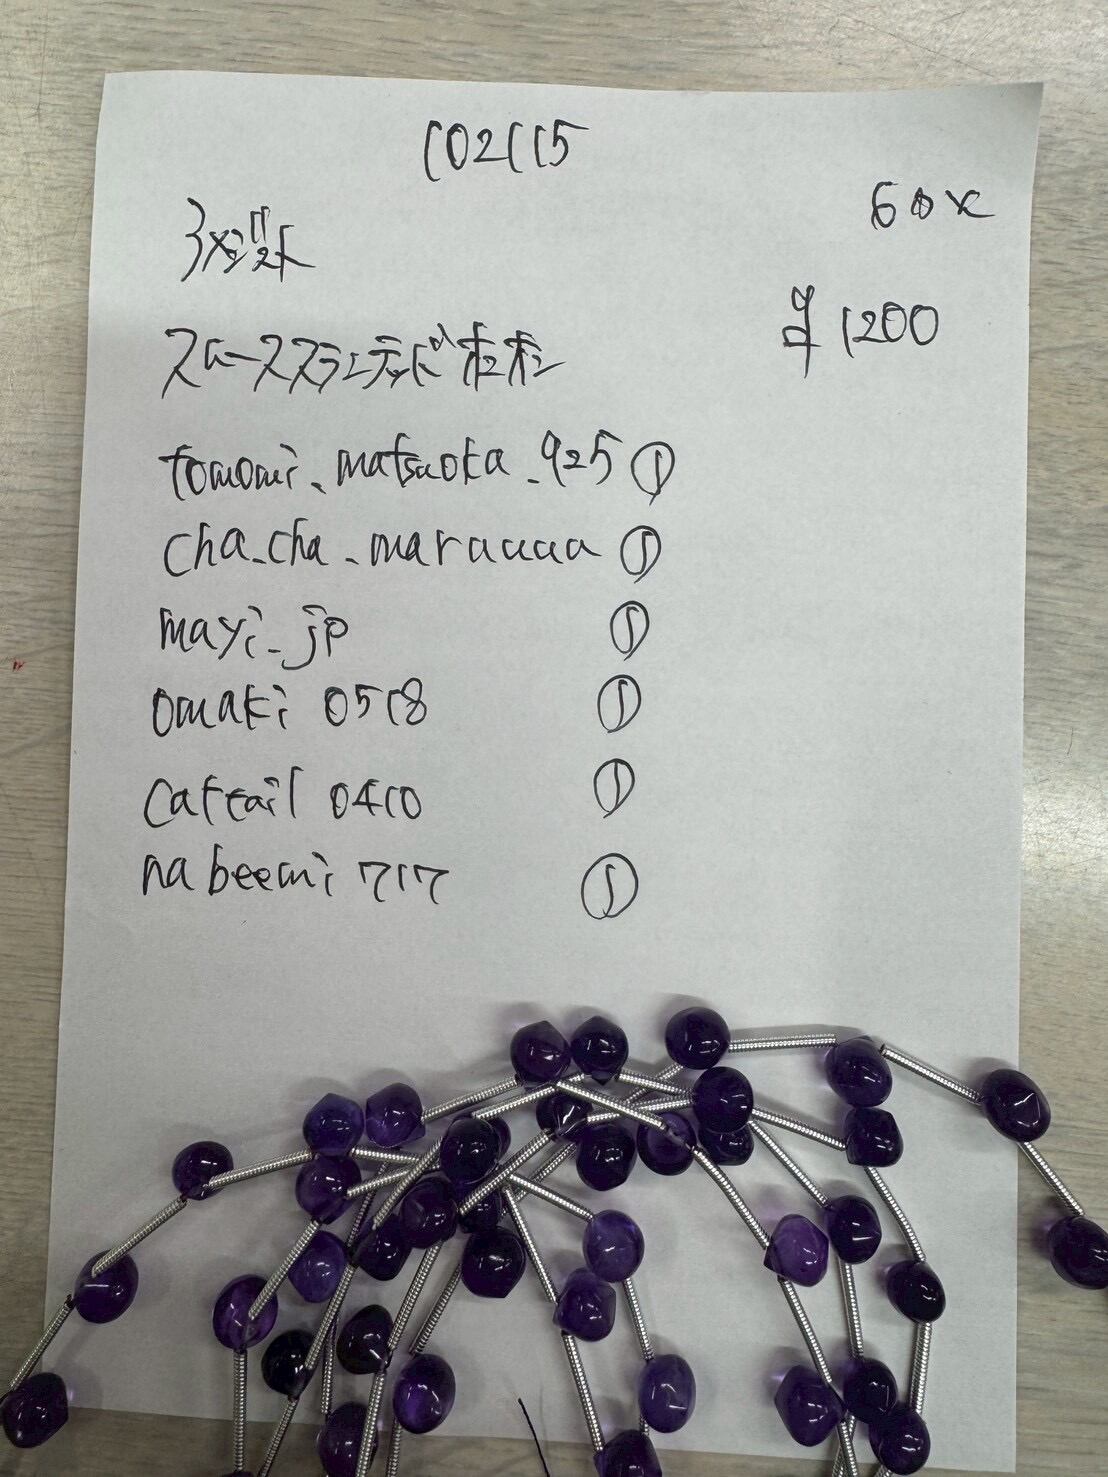 102115
60x
アメジスト
¥1200
スムーススランテッドボオボオン
tomomi_matsuoka_925 ①
cha_cha_maruuuu ①
mayi_jp ①
omaki 0518 ①
cattail 0410 ①
nabeemi 717 ①